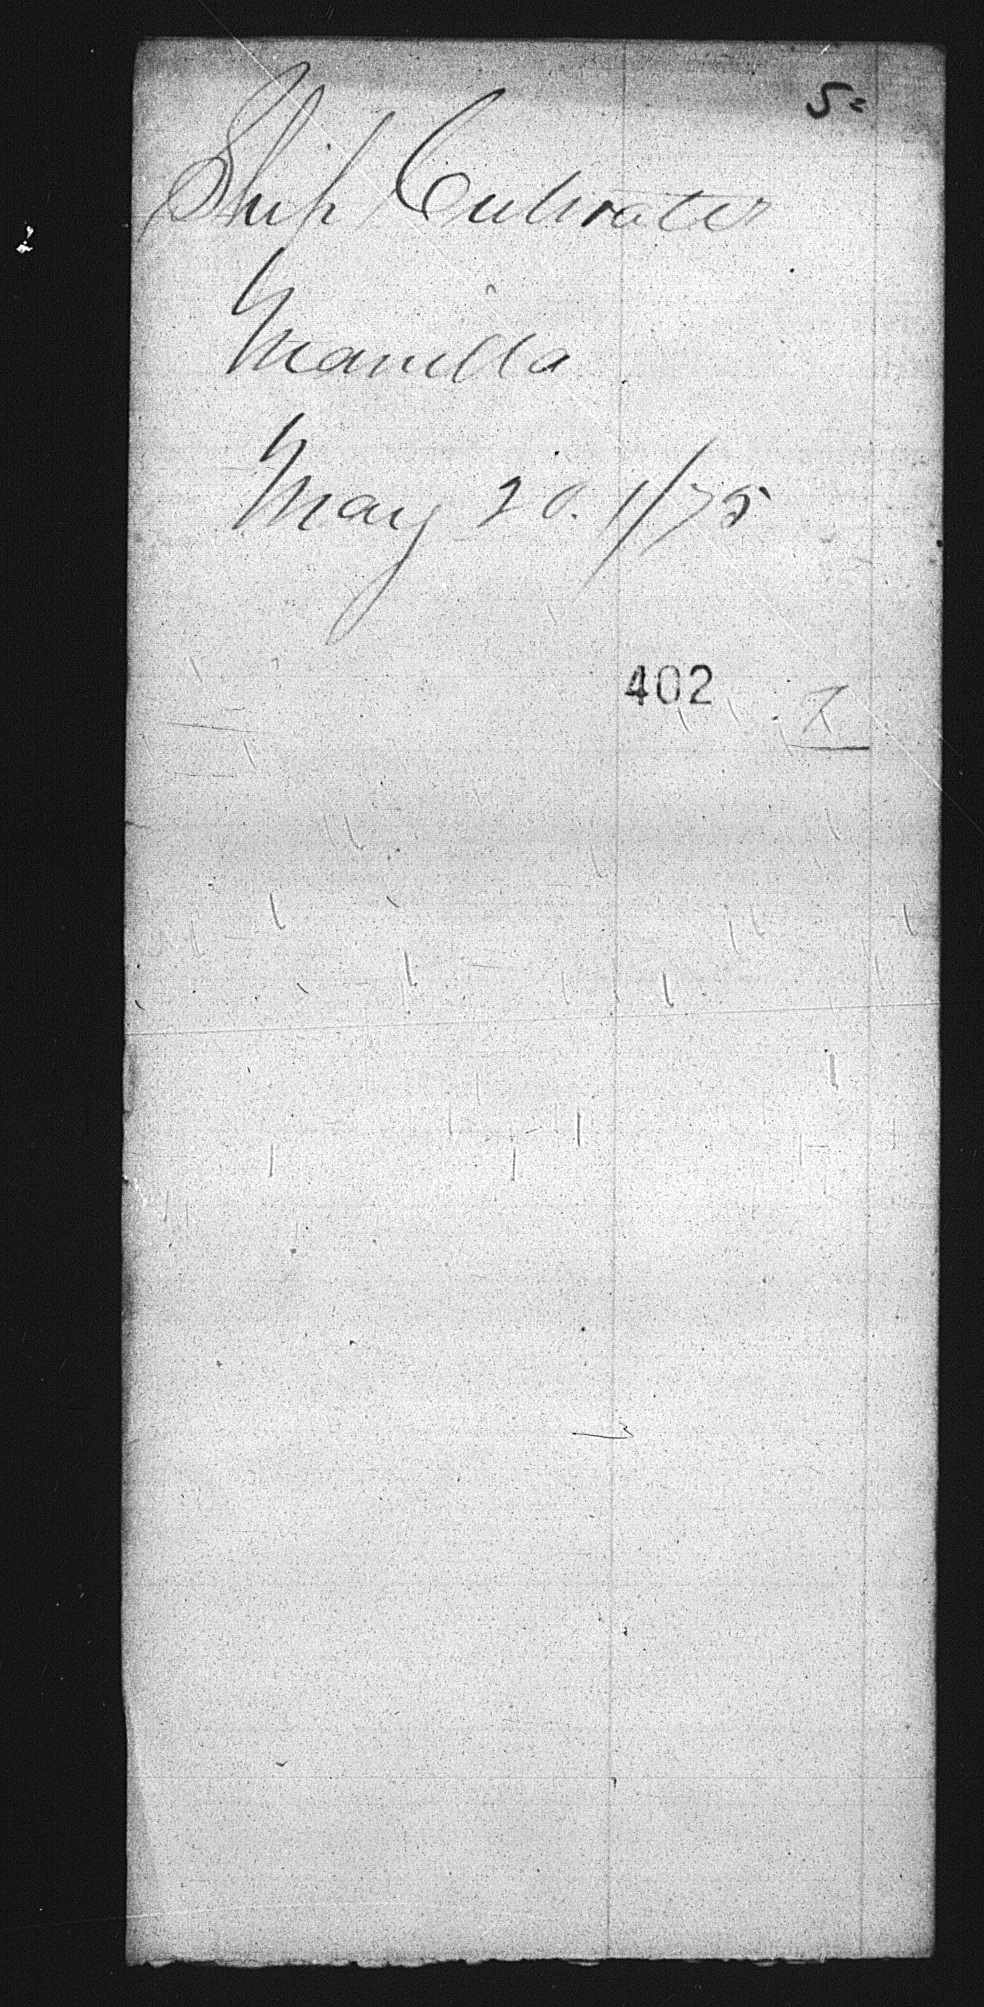 5=
Ship Cultivator
Manilla
May 20. 1/75
402